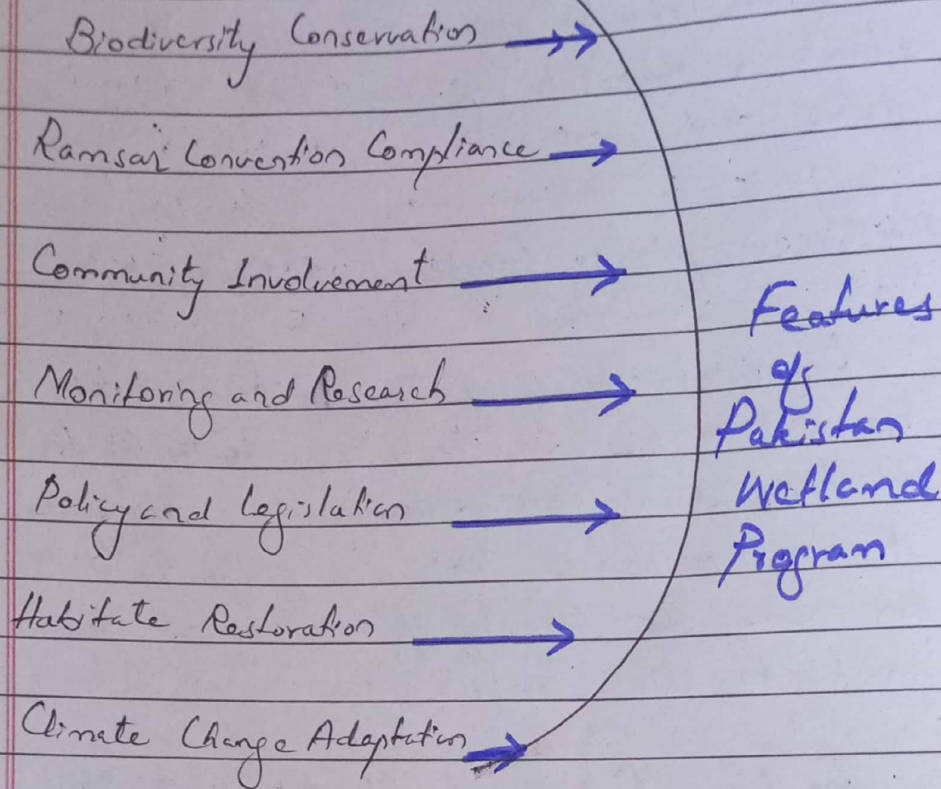 Biodiversity Conservation
Ramsar Convention Compliance
Community Involvement
Monitoring and Research
Policy and legislation
Habitate Restoration
Climate Change Adaptation
Features
of
Pakistan
Wetland
Program